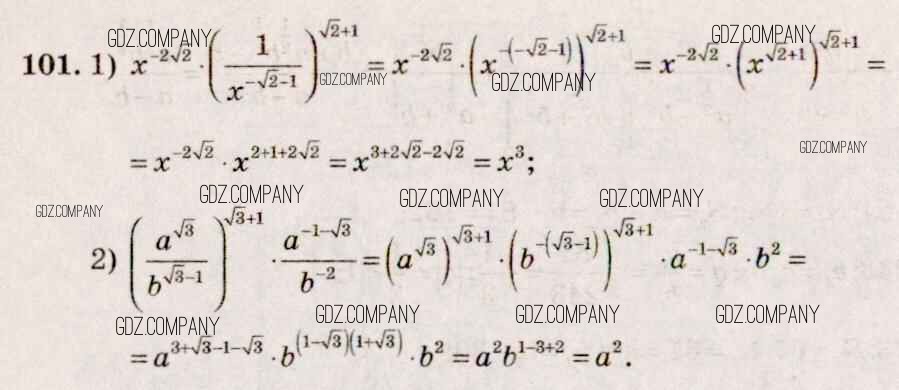 GDZ.COMPANY GDZ.COMPANY
101. 1) x^{-2√2} · (1/x^{-√2-1})^{√2+1} = x^{-2√2} · (x^{-(-√2-1)})^{√2+1} = x^{-2√2} · (x^{√2+1})^{√2+1} =
GDZ.COMPANY GDZ.COMPANY
= x^{-2√2} · x^{2+1+2√2} = x^{3+2√2-2√2} = x^3;
GDZ.COMPANY
GDZ.COMPANY GDZ.COMPANY GDZ.COMPANY
GDZ.COMPANY
2) (a^{√3}/b^{√3-1})^{√3+1} · a^{-1-√3}/b^{-2} = (a^{√3})^{√3+1} · (b^{-(√3-1)})^{√3+1} · a^{-1-√3} · b^2 =
GDZ.COMPANY GDZ.COMPANY GDZ.COMPANY GDZ.COMPANY
= a^{3+√3-1-√3} · b^{(1-√3)(1+√3)} · b^2 = a^2b^{1-3+2} = a^2.